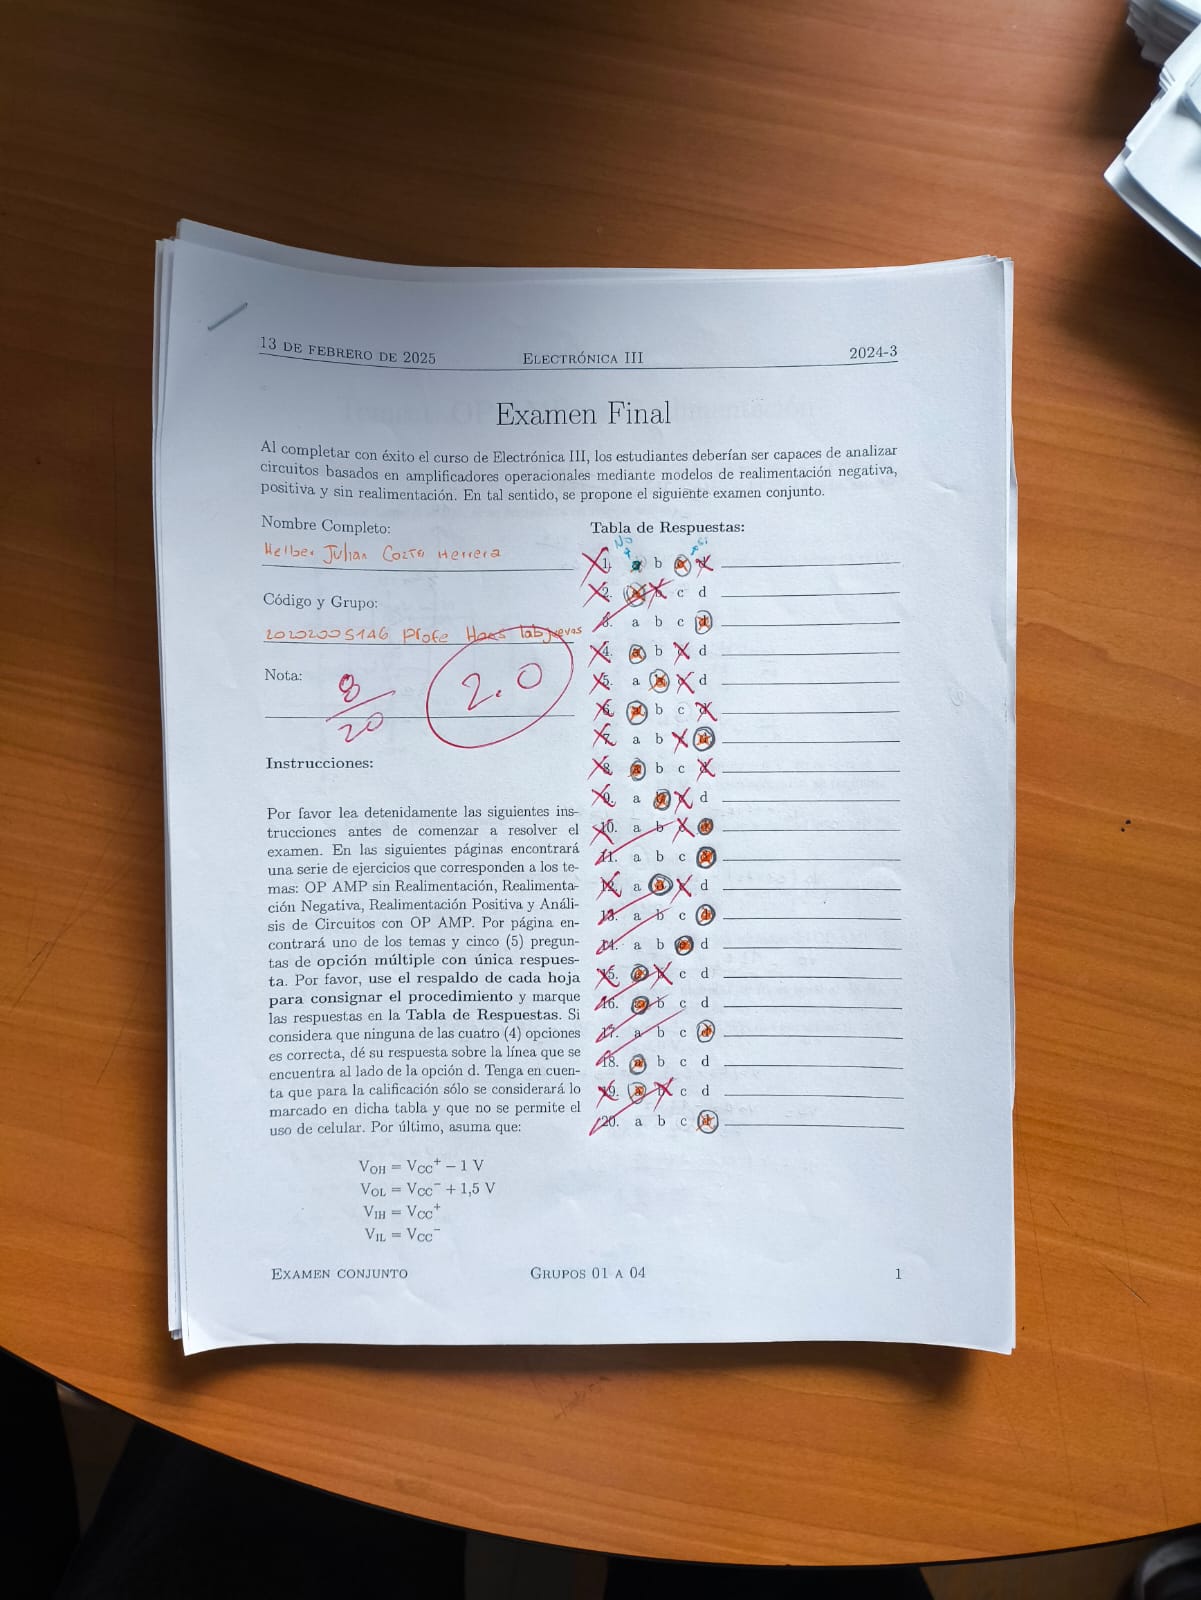 13 DE FEBRERO DE 2025 ELECTRÓNICA III 2024-3
Examen Final
Al completar con éxito el curso de Electrónica III, los estudiantes deberían ser capaces de analizar
circuitos basados en amplificadores operacionales mediante modelos de realimentación negativa,
positiva y sin realimentación. En tal sentido, se propone el siguiente examen conjunto.
Nombre Completo:
Helber Julian
Herrera
Código y Grupo:
20202005146 Profe
Nota:
8/20
2.0
Instrucciones:
Por favor lea detenidamente las siguientes ins-
trucciones antes de comenzar a resolver el
examen. En las siguientes páginas encontrará
una serie de ejercicios que corresponden a los te-
mas: OP AMP sin Realimentación, Realimenta-
ción Negativa, Realimentación Positiva y Análi-
sis de Circuitos con OP AMP. Por página en-
contrará uno de los temas y cinco (5) pregun-
tas de opción múltiple con única respues-
ta. Por favor, use el respaldo de cada hoja
para consignar el procedimiento y marque
las respuestas en la Tabla de Respuestas. Si
considera que ninguna de las cuatro (4) opciones
es correcta, dé su respuesta sobre la línea que se
encuentra al lado de la opción d. Tenga en cuen-
ta que para la calificación sólo se considerará lo
marcado en dicha tabla y que no se permite el
uso de celular. Por último, asuma que:
VOH = VCC+ − 1 V
VOL = VCC− + 1,5 V
VIH = VCC+
VIL = VCC−
Tabla de Respuestas:
No si
1. a b c d
2. a b c d
3. a b c d
4. a b c d
5. a b c d
6. a b c d
7. a b c d
8. a b c d
9. a b c d
10. a b c d
11. a b c d
12. a b c d
13. a b c d
14. a b c d
15. a b c d
16. a b c d
17. a b c d
18. a b c d
19. a b c d
20. a b c d
EXAMEN CONJUNTO GRUPOS 01 A 04 1